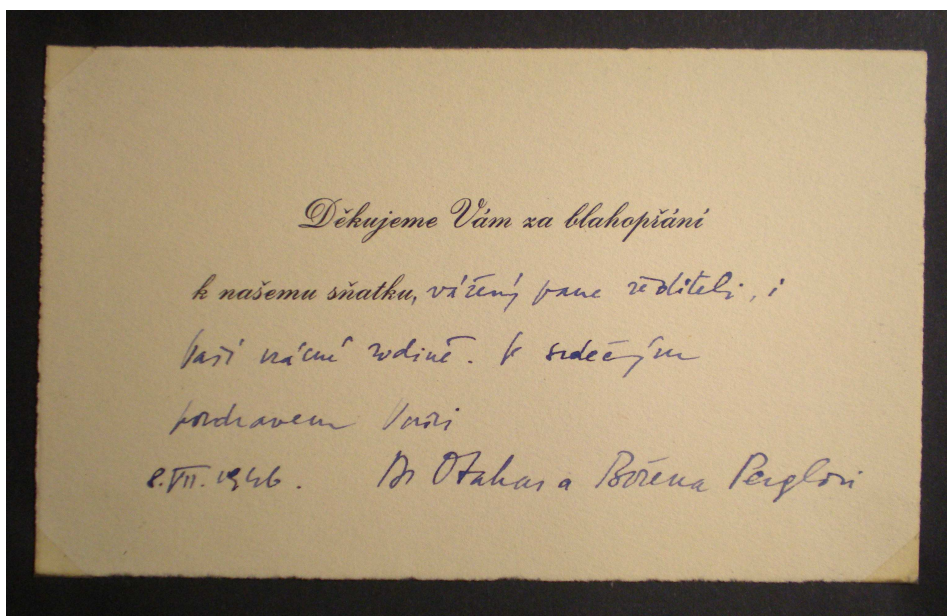 Děkujeme Vám za blahopřání
k našemu sňatku, vážený pane řediteli, i
Vaší vzácné rodině. S srdečným
pozdravem Vaši
8.VII.1946. Dr Otakar a Božena Perglovi